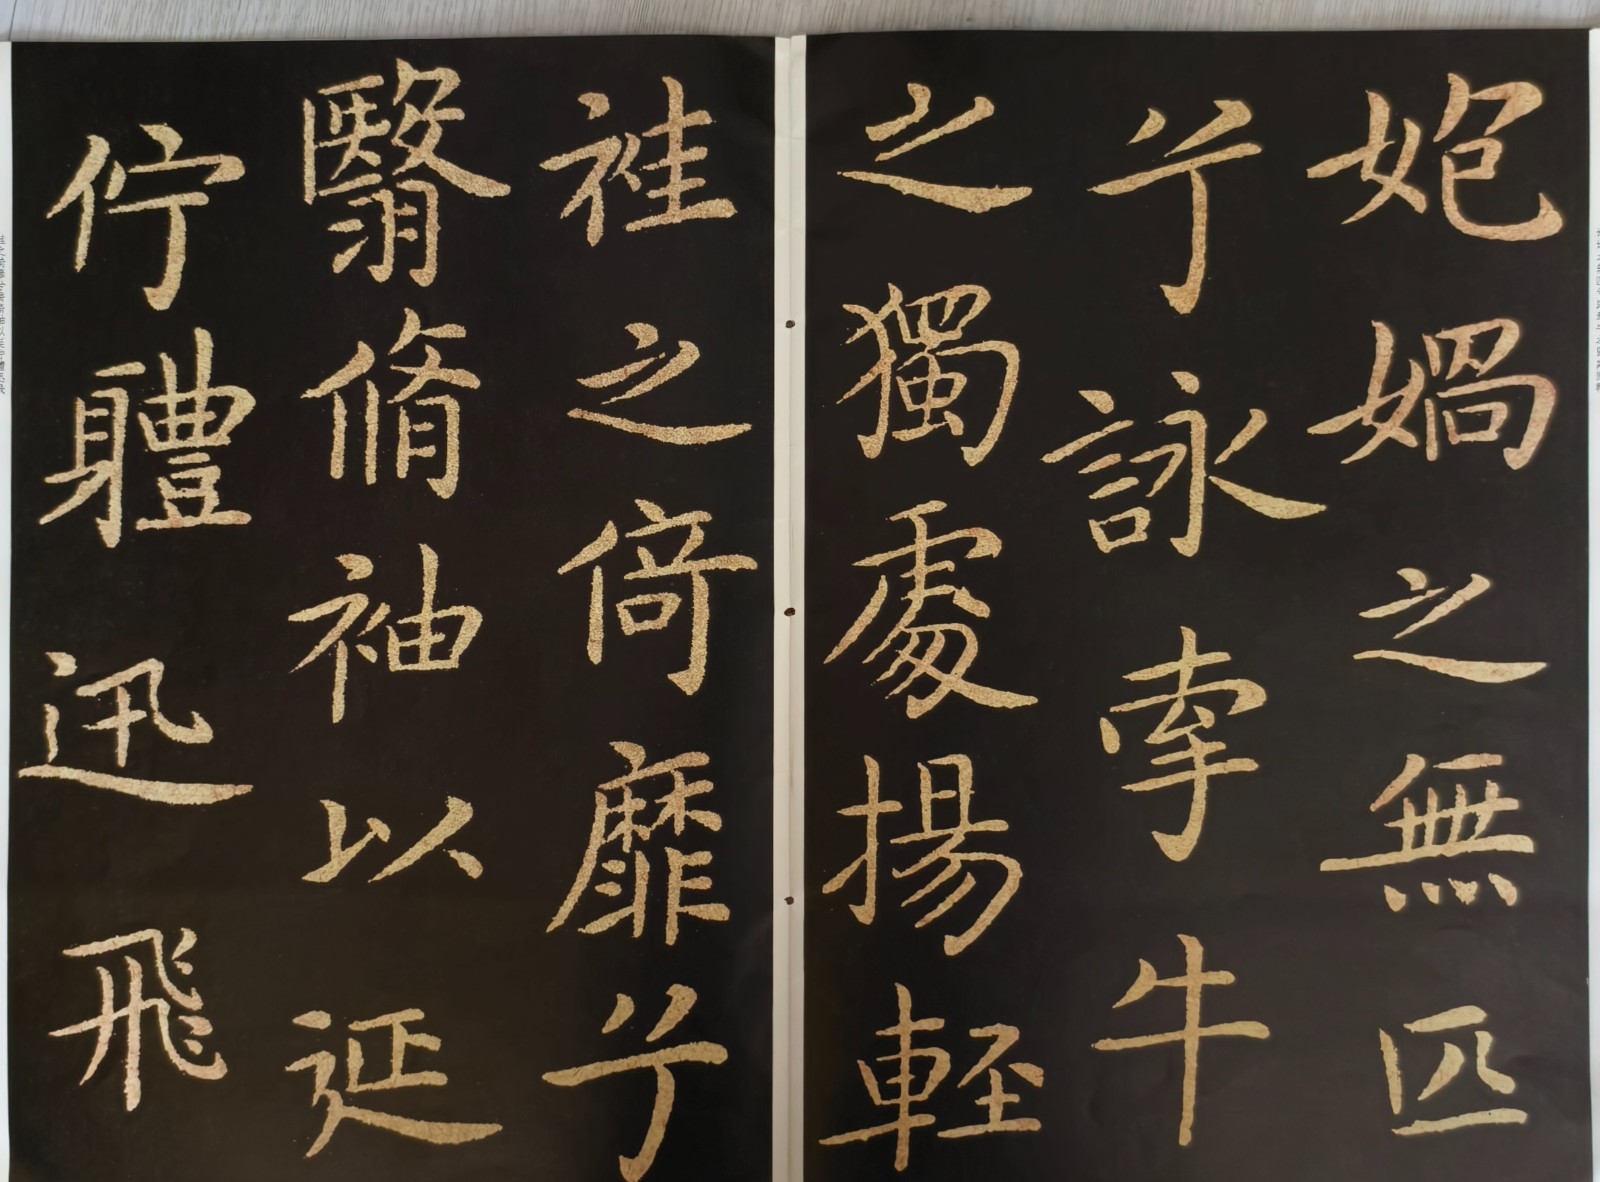 㚿媧之無匹
兮詠牽牛
之獨處揚輕
袿之倚靡兮
翳脩袖以延
佇軆迅飛